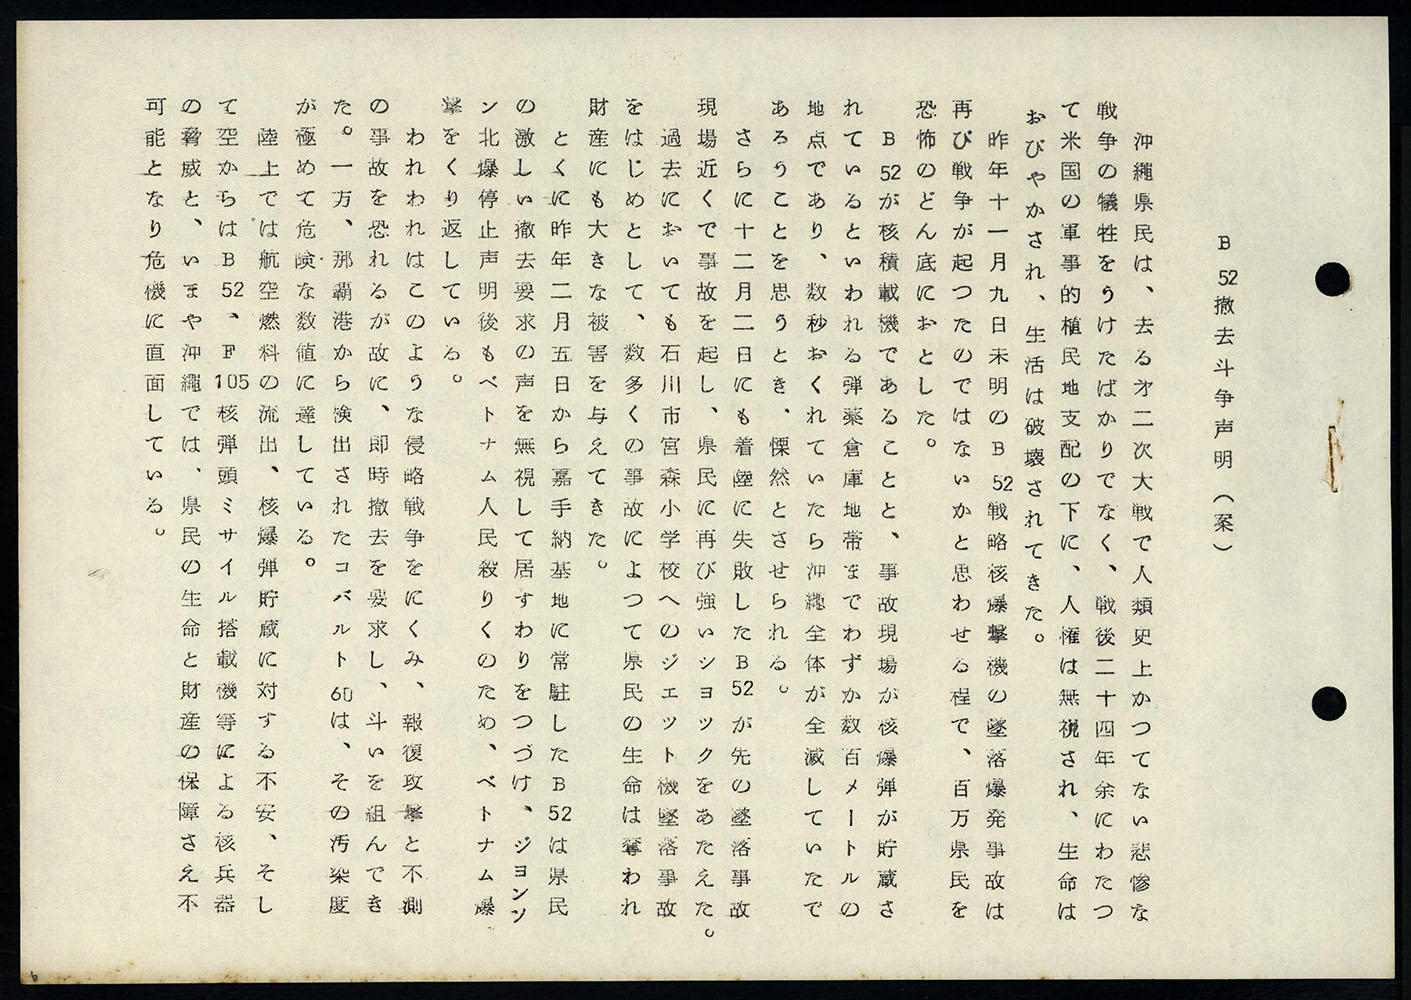 B52撤去斗争声明（案）
沖縄県民は、去る才二次大戦で人類史上かつてない悲惨な
戦争の犠牲をうけたばかりでなく、戦後二十四年余にわたつ
て米国の軍事的植民地支配の下に、人権は無視され、生命は
おびやかされ、生活は破壊されてきた。
昨年十一月九日未明のB52戦略核爆撃機の墜落爆発事故は
再び戦争が起つたのではないかと思わせる程で、百万県民を
恐怖のどん底におとした。
B52が核積載機であることと、事故現場が核爆弾が貯蔵さ
れているといわれる弾薬倉庫地帯までわずか数百メートルの
地点であり、数秒おくれていたら沖縄全体が全滅していたで
あろうことを思うとき、慄然とさせられる。
さらに十二月二日にも着陸に失敗したB52が先の墜落事故
現場近くで事故を起し、県民に再び強いショックをあたえた。
過去においても石川市宮森小学校へのジェット機墜落事故
をはじめとして、数多くの事故によつて県民の生命は奪われ
財産にも大きな被害を与えてきた。
とくに昨年二月五日から嘉手納基地に常駐したB52は県民
の激しい撤去要求の声を無視して居すわりをつづけ、ジョンソ
ン北爆停止声明後もベトナム人民殺りくのため、ベトナム爆
撃をくり返している。
われわれはこのような侵略戦争をにくみ、報復攻撃と不測
の事故を恐れるが故に、即時撤去を要求し、斗いを組んでき
た。一方、那覇港から検出されたコバルト60は、その汚染度
が極めて危険な数値に達している。
陸上では航空燃料の流出、核爆弾貯蔵に対する不安、そし
て空からはB52、F105核弾頭ミサイル搭載機等による核兵器
の脅威と、いまや沖縄では、県民の生命と財産の保障さえ不
可能となり危機に直面している。
6